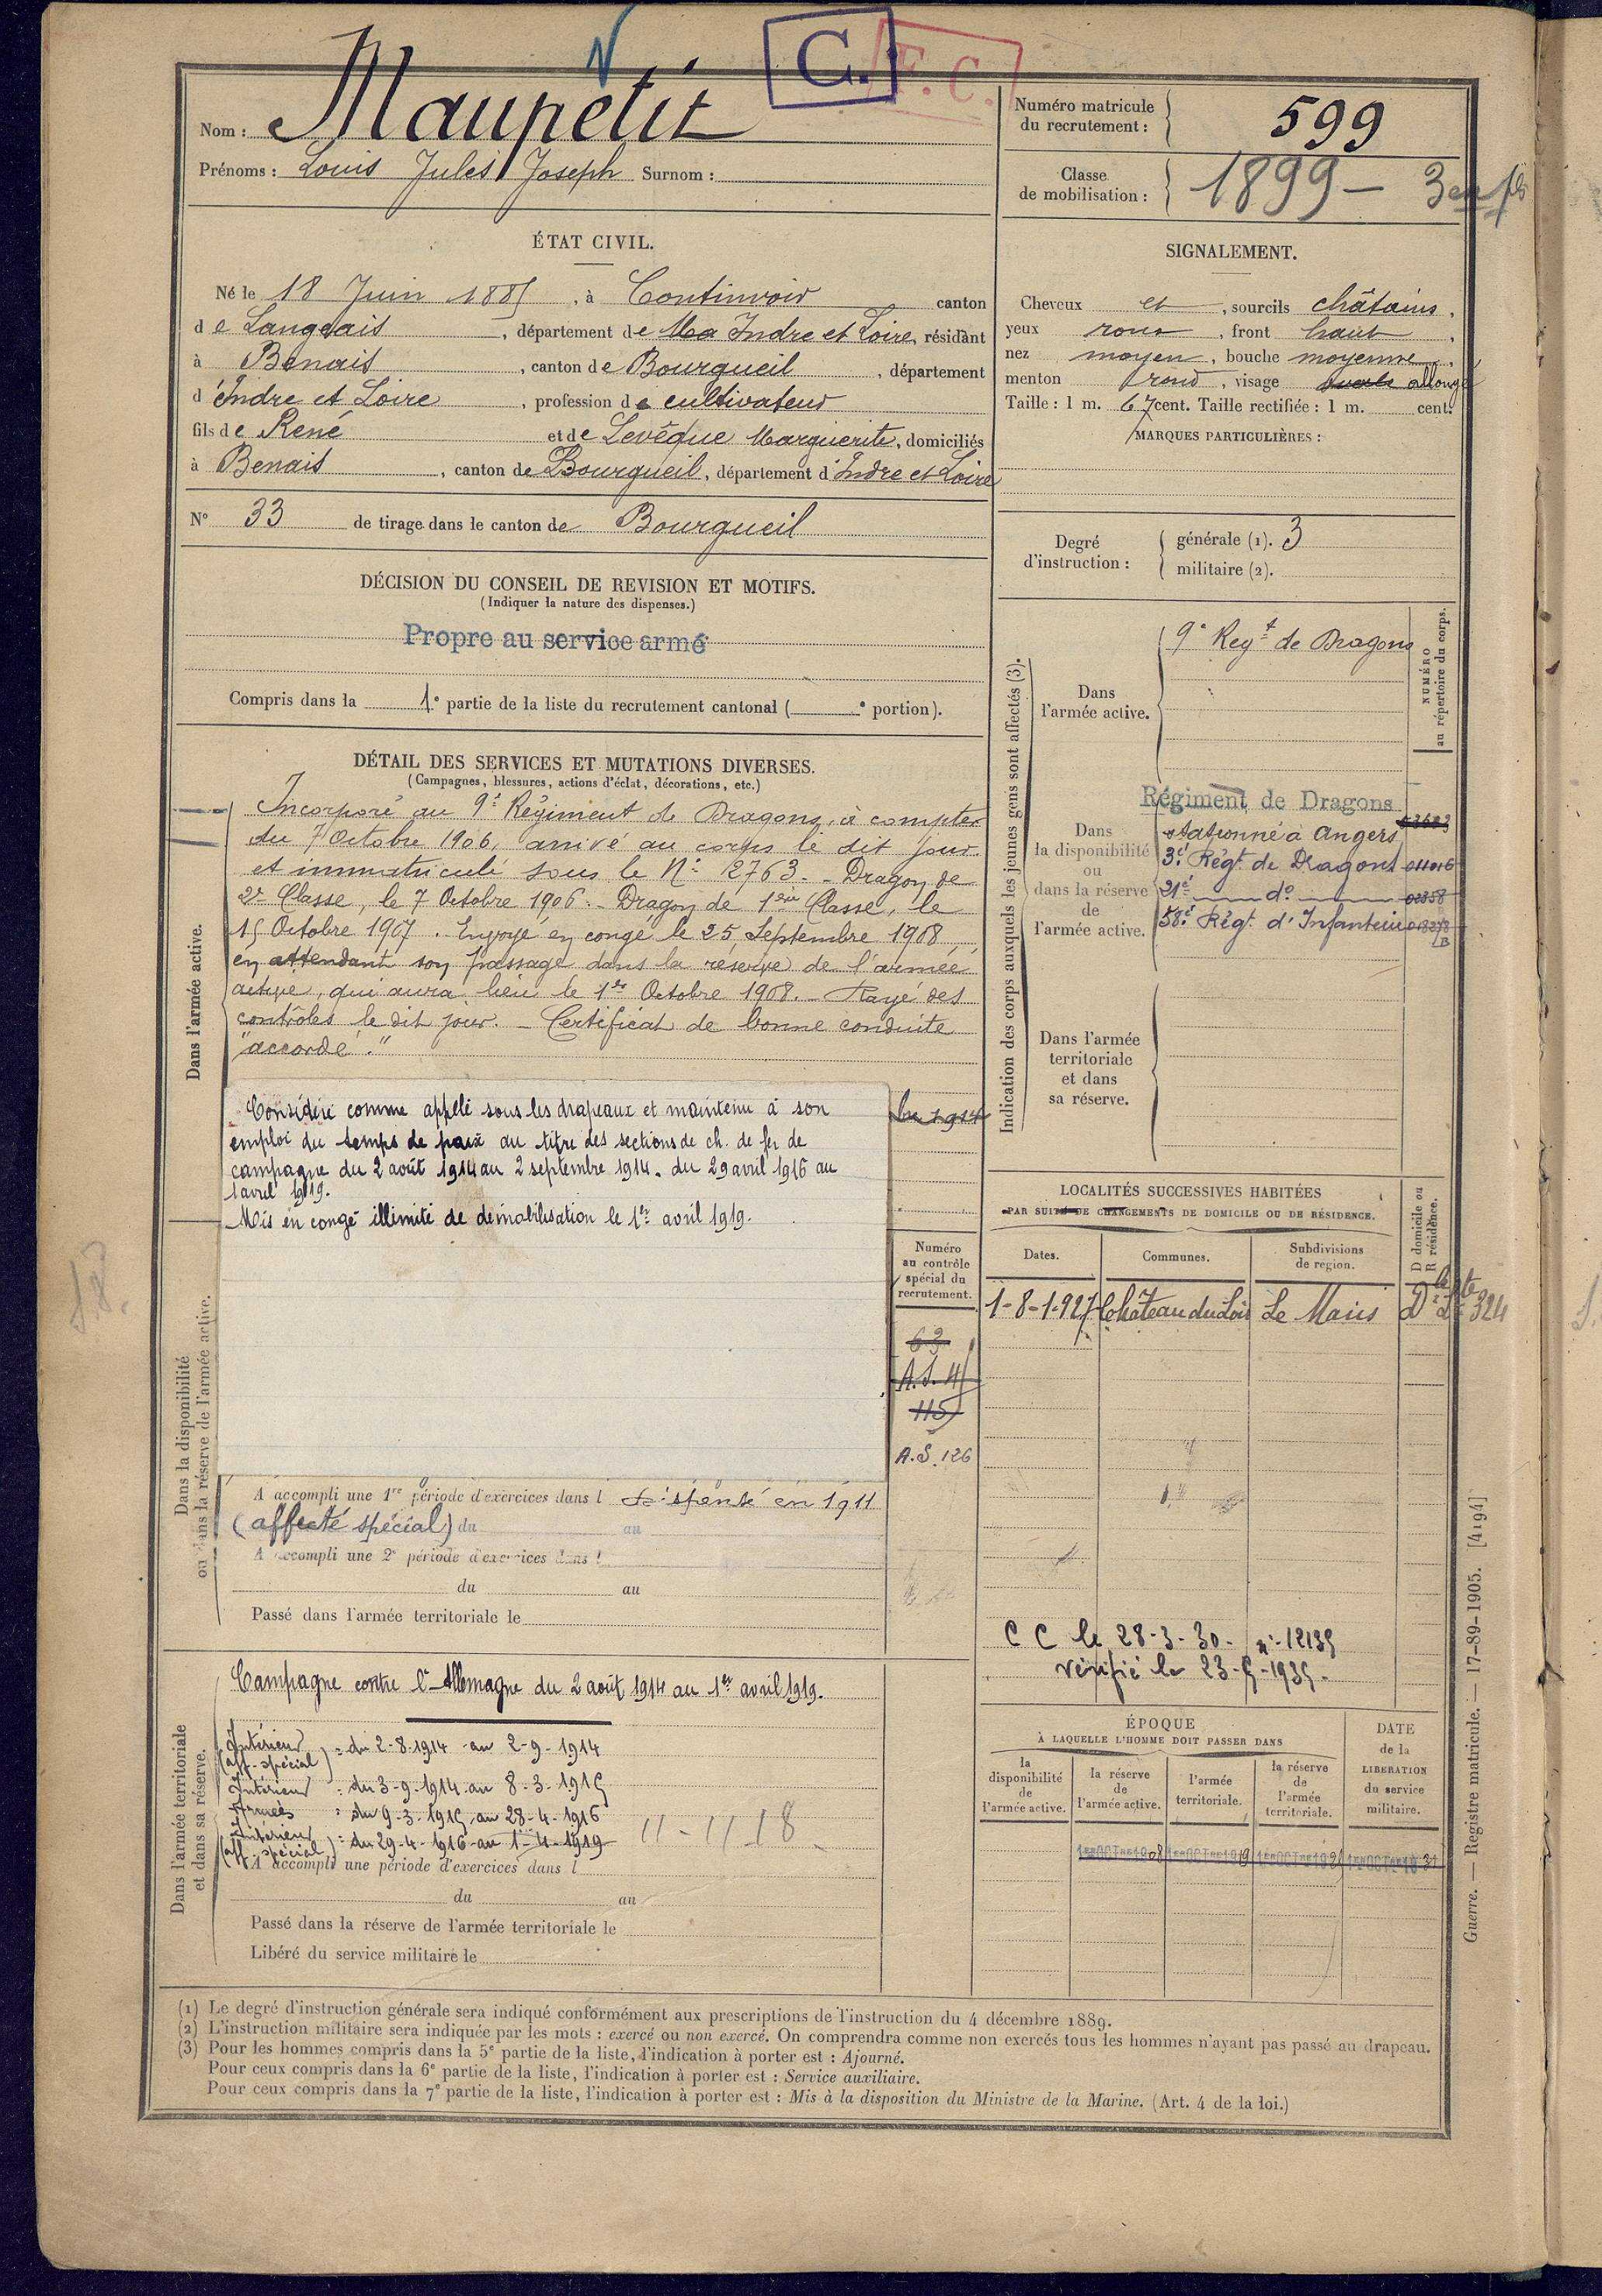 C.
F.C.
Nom : Maupetit
Prénoms : Louis Jules Joseph Surnom :
Numéro matricule du recrutement : 599
Classe de mobilisation : 1899 - 3
ÉTAT CIVIL.
Né le 18 Juin 1885, à Continvoir canton
de Langeais, département de Indre et Loire, résidant
à Benais, canton de Bourgueil, département
d'Indre et Loire, profession de cultivateur
fils de René et de Levêque Marguerite, domiciliés
à Benais, canton de Bourgueil, département d'Indre et Loire
N° 33 de tirage dans le canton de Bourgueil
DÉCISION DU CONSEIL DE REVISION ET MOTIFS.
(Indiquer la nature des dispenses.)
Propre au service armé
Compris dans la 1e partie de la liste du recrutement cantonal ( e portion).
SIGNALEMENT.
Cheveux et, sourcils châtains,
yeux roux, front haut,
nez moyen, bouche moyenne,
menton rond, visage ovale allongé
Taille : 1 m. 67 cent. Taille rectifiée : 1 m. cent.
MARQUES PARTICULIÈRES :
Degré d'instruction :
générale (1). 3
militaire (2).
DÉTAIL DES SERVICES ET MUTATIONS DIVERSES.
(Campagnes, blessures, actions d'éclat, décorations, etc.)
Dans l'armée active.
Incorporé au 9e Régiment de Dragons, à compter
du 7 Octobre 1906, arrivé au corps le dit jour
et immatriculé sous le N° 2763. - Dragon de
2e Classe, le 7 Octobre 1906. - Dragon de 1ère Classe, le
15 Octobre 1907. Envoyé en congé le 25 Septembre 1908
en attendant son passage dans la réserve de l'armée
active, qui aura lieu le 1er Octobre 1908. - Rayé des
contrôles le dit jour. - Certificat de bonne conduite
"accordé."
Considéré comme appelé sous les drapeaux et maintenu à son
emploi du temps de paix au titre des sections de ch. de fer de
campagne du 2 août 1914 au 2 septembre 1914. du 29 avril 1916 au
1 avril 1919.
Mis en congé illimité de démobilisation le 1er avril 1919.
bre 1914
Indication des corps auxquels les jeunes gens sont affectés (3).
NUMÉRO au répertoire du corps.
Dans l'armée active.
9e Regt de Dragons
Dans la disponibilité ou dans la réserve de l'armée active.
Régiment de Dragons
stationné à Angers
3e Régt de Dragons 011016
21e do 02358
58e Régt d'Infanterie
Dans l'armée territoriale et dans sa réserve.
LOCALITÉS SUCCESSIVES HABITÉES
PAR SUITE DE CHANGEMENTS DE DOMICILE OU DE RÉSIDENCE.
Dates.
Communes.
Subdivisions de region.
D domicile ou R résidence.
1-8-1927 Château du Loir Le Mans D 324
C C le 28-3-30. n° 12139
vérifié le 23-5-1935.
Numéro au contrôle spécial du recrutement.
63
A.S. 41
115
A.S. 126
18.
Dans la disponibilité ou dans la réserve de l'armée active.
A accompli une 1re période d'exercices dans l dispensé en 1911
(affecté spécial) du au
A accompli une 2e période d'exercices dans l
du au
Passé dans l'armée territoriale le
Dans l'armée territoriale et dans sa réserve.
Campagne contre l'Allemagne du 2 août 1914 au 1er avril 1919.
Intérieur (aff. spécial) : du 2-8-1914 au 2-9-1914
Intérieur : du 3-9-1914 au 8-3-1915
Armées : du 9-3-1915 au 28-4-1916
Intérieur (aff. spécial) : du 29-4-1916 au 1-4-1919
11-11 18
A accompli une période d'exercices dans l
du au
Passé dans la réserve de l'armée territoriale le
Libéré du service militaire le
ÉPOQUE
À LAQUELLE L'HOMME DOIT PASSER DANS
la disponibilité de l'armée active.
la réserve de l'armée active.
l'armée territoriale.
la réserve de l'armée territoriale.
DATE de la LIBÉRATION du service militaire.
1ER OCTBRE 1908 1ER OCTBRE 1919
Guerre. — Registre matricule. — 17-89-1905. [4194]
(1) Le degré d'instruction générale sera indiqué conformément aux prescriptions de l'instruction du 4 décembre 1889.
(2) L'instruction militaire sera indiquée par les mots : exercé ou non exercé. On comprendra comme non exercés tous les hommes n'ayant pas passé au drapeau.
(3) Pour les hommes compris dans la 5e partie de la liste, l'indication à porter est : Ajourné.
Pour ceux compris dans la 6e partie de la liste, l'indication à porter est : Service auxiliaire.
Pour ceux compris dans la 7e partie de la liste, l'indication à porter est : Mis à la disposition du Ministre de la Marine. (Art. 4 de la loi.)